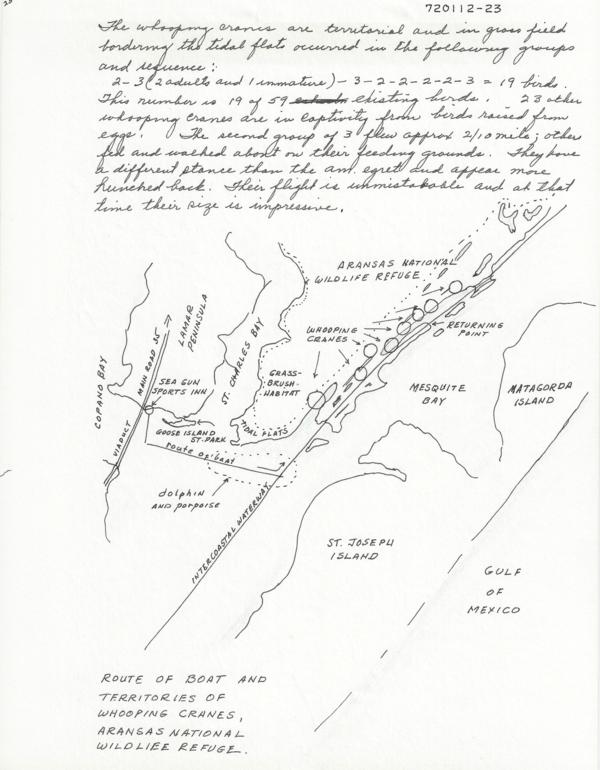 720112-23
The whooping cranes are territorial and in grass field
bordering the tidal flats occurred in the following groups
and sequence:
2-3 (2 adults and 1 immature) - 3-2-2-2-2-3 = 19 birds.
This number is 19 of 59 existing birds. 23 other
whooping cranes are in captivity from birds raised from
eggs. The second group of 3 flew approx 2/10 mile; others
fed and walked about on their feeding grounds. They have
a different stance than the am. egret and appear more
hunched back. Their flight is unmistakable and at that
time their size is impressive.
ARANSAS NATIONAL
WILDLIFE REFUGE
LAMAR
PENINSULA
MAIN ROAD 35
ST. CHARLES BAY
WHOOPING
CRANES
RETURNING
POINT
COPANO BAY
SEA GUN
SPORTS INN
GRASS-
BRUSH-
HABITAT
MESQUITE
BAY
MATAGORDA
ISLAND
VIADUCT
GOOSE ISLAND
ST. PARK
TIDAL FLATS
route of boat
dolphin
AND porpoise
INTERCOASTAL WATERWAY
ST. JOSEPH
ISLAND
GULF
OF
MEXICO
ROUTE OF BOAT AND
TERRITORIES OF
WHOOPING CRANES,
ARANSAS NATIONAL
WILDLIFE REFUGE.